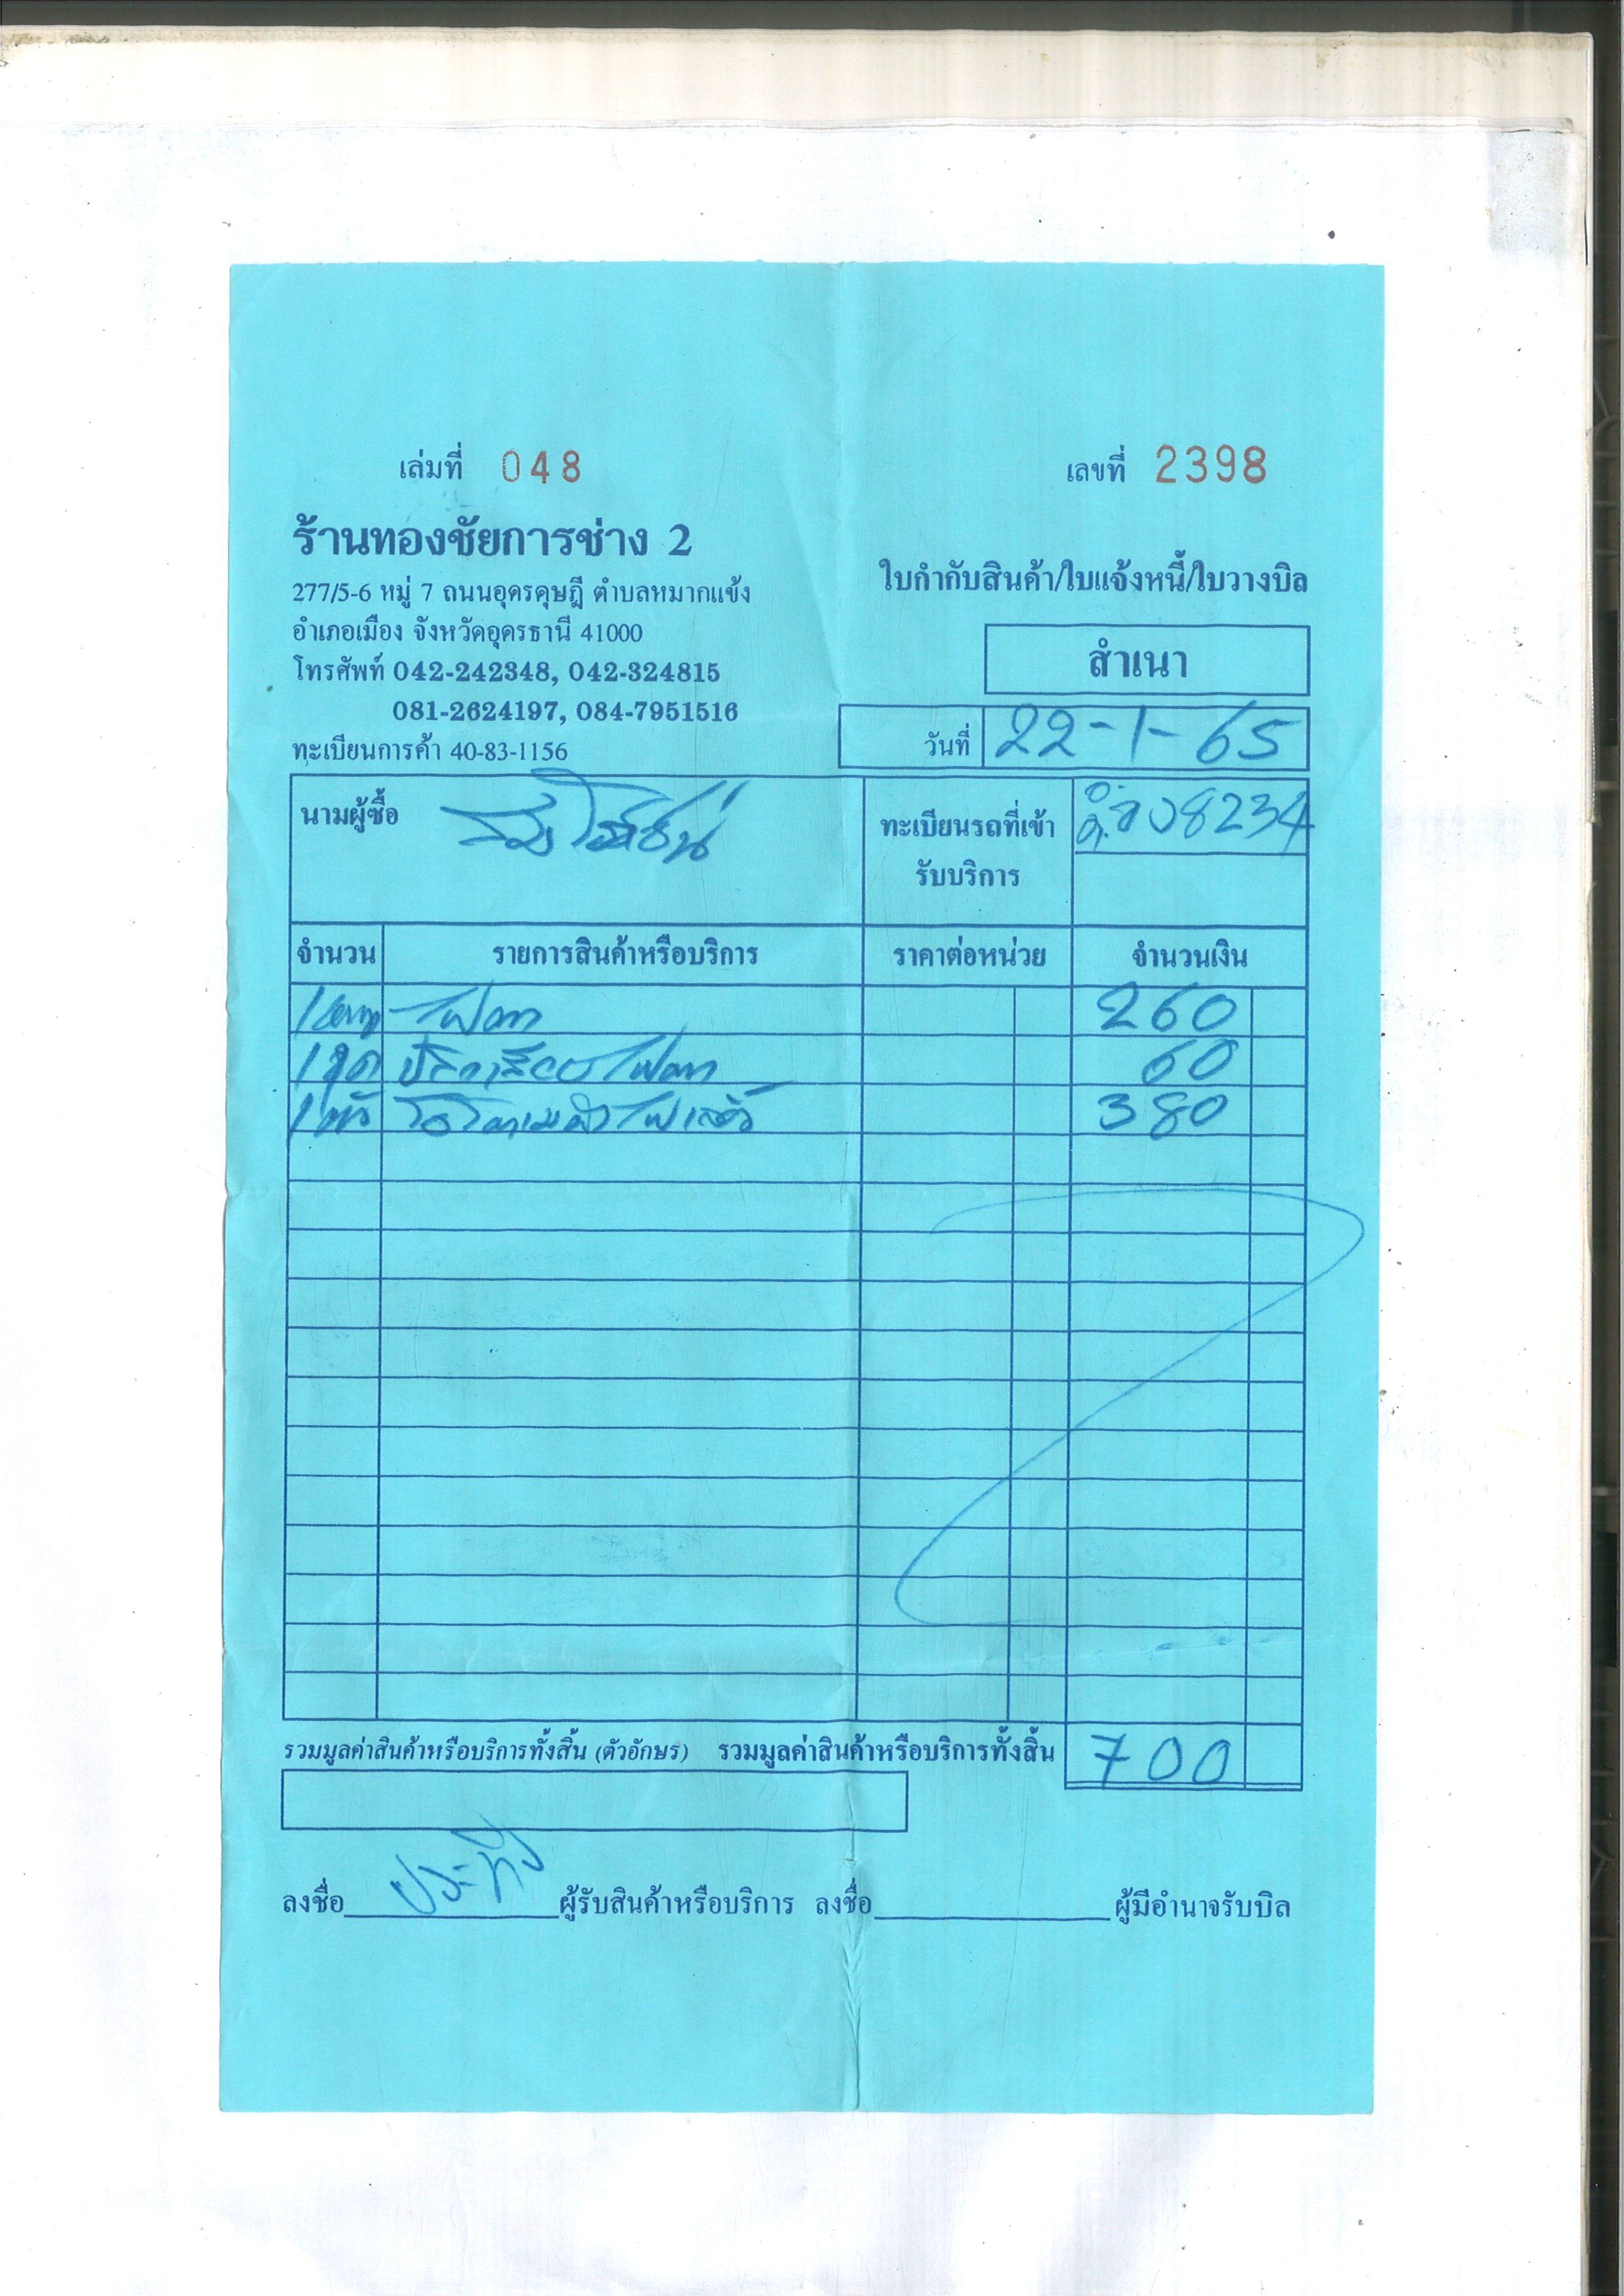 เล่มที่ 048 เลขที่ 2398
ร้านทองชัยการช่าง 2
277/5-6 หมู่ 7 ถนนอุดรดุษฎี ตำบลหมากแข้ง
ใบกำกับสินค้า/ใบแจ้งหนี้/ใบวางบิล
อำเภอเมือง จังหวัดอุดรธานี 41000
สำเนา
โทรศัพท์ 042-242348, 042-324815
081-2624197, 084-7951516
วันที่ 22-1-65
ทะเบียนการค้า 40-83-1156
นามผู้ซื้อ
ทะเบียนรถที่เข้า 8234
รับบริการ
จำนวน รายการสินค้าหรือบริการ ราคาต่อหน่วย จำนวนเงิน
1 ไฟตา 260
1 ชุด ไฟตา 60
1 ตัว 380
รวมมูลค่าสินค้าหรือบริการทั้งสิ้น (ตัวอักษร) รวมมูลค่าสินค้าหรือบริการทั้งสิ้น 700
ลงชื่อ ผู้รับสินค้าหรือบริการ ลงชื่อ ผู้มีอำนาจรับบิล